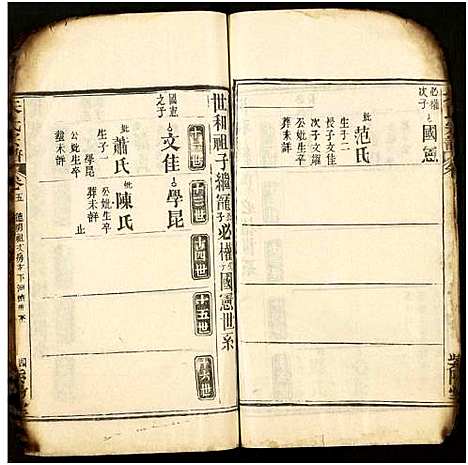 必權
次子
國憲
妣范氏
生子二
長子文佳
次子文耀
公妣生卒
葬未詳
世和祖子繼寵子必權子國憲世系
十二世
十三世
十四世
十五世
十六世
國憲
之子
文佳
妣蕭氏
生子一
學昆
公妣生卒
塟未詳
學昆
妣陳氏
公妣生卒
葬未詳
止